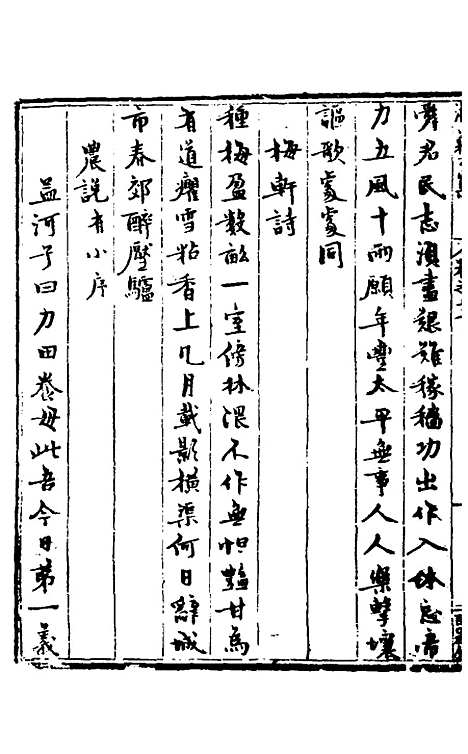 舜君民志須盡艱難稼穡功出作入休忘帝
力五風十雨願年豐太平無事人人樂擊壤
謳歌處處同
梅軒詩
種梅盈數畝一室傍林隈不作無怛豔甘為
有道癯雪粘香上几月載影橫渠何日辭城
市春郊醉壓驢
農說有小序
益河子曰力田養母此吾今日第一義